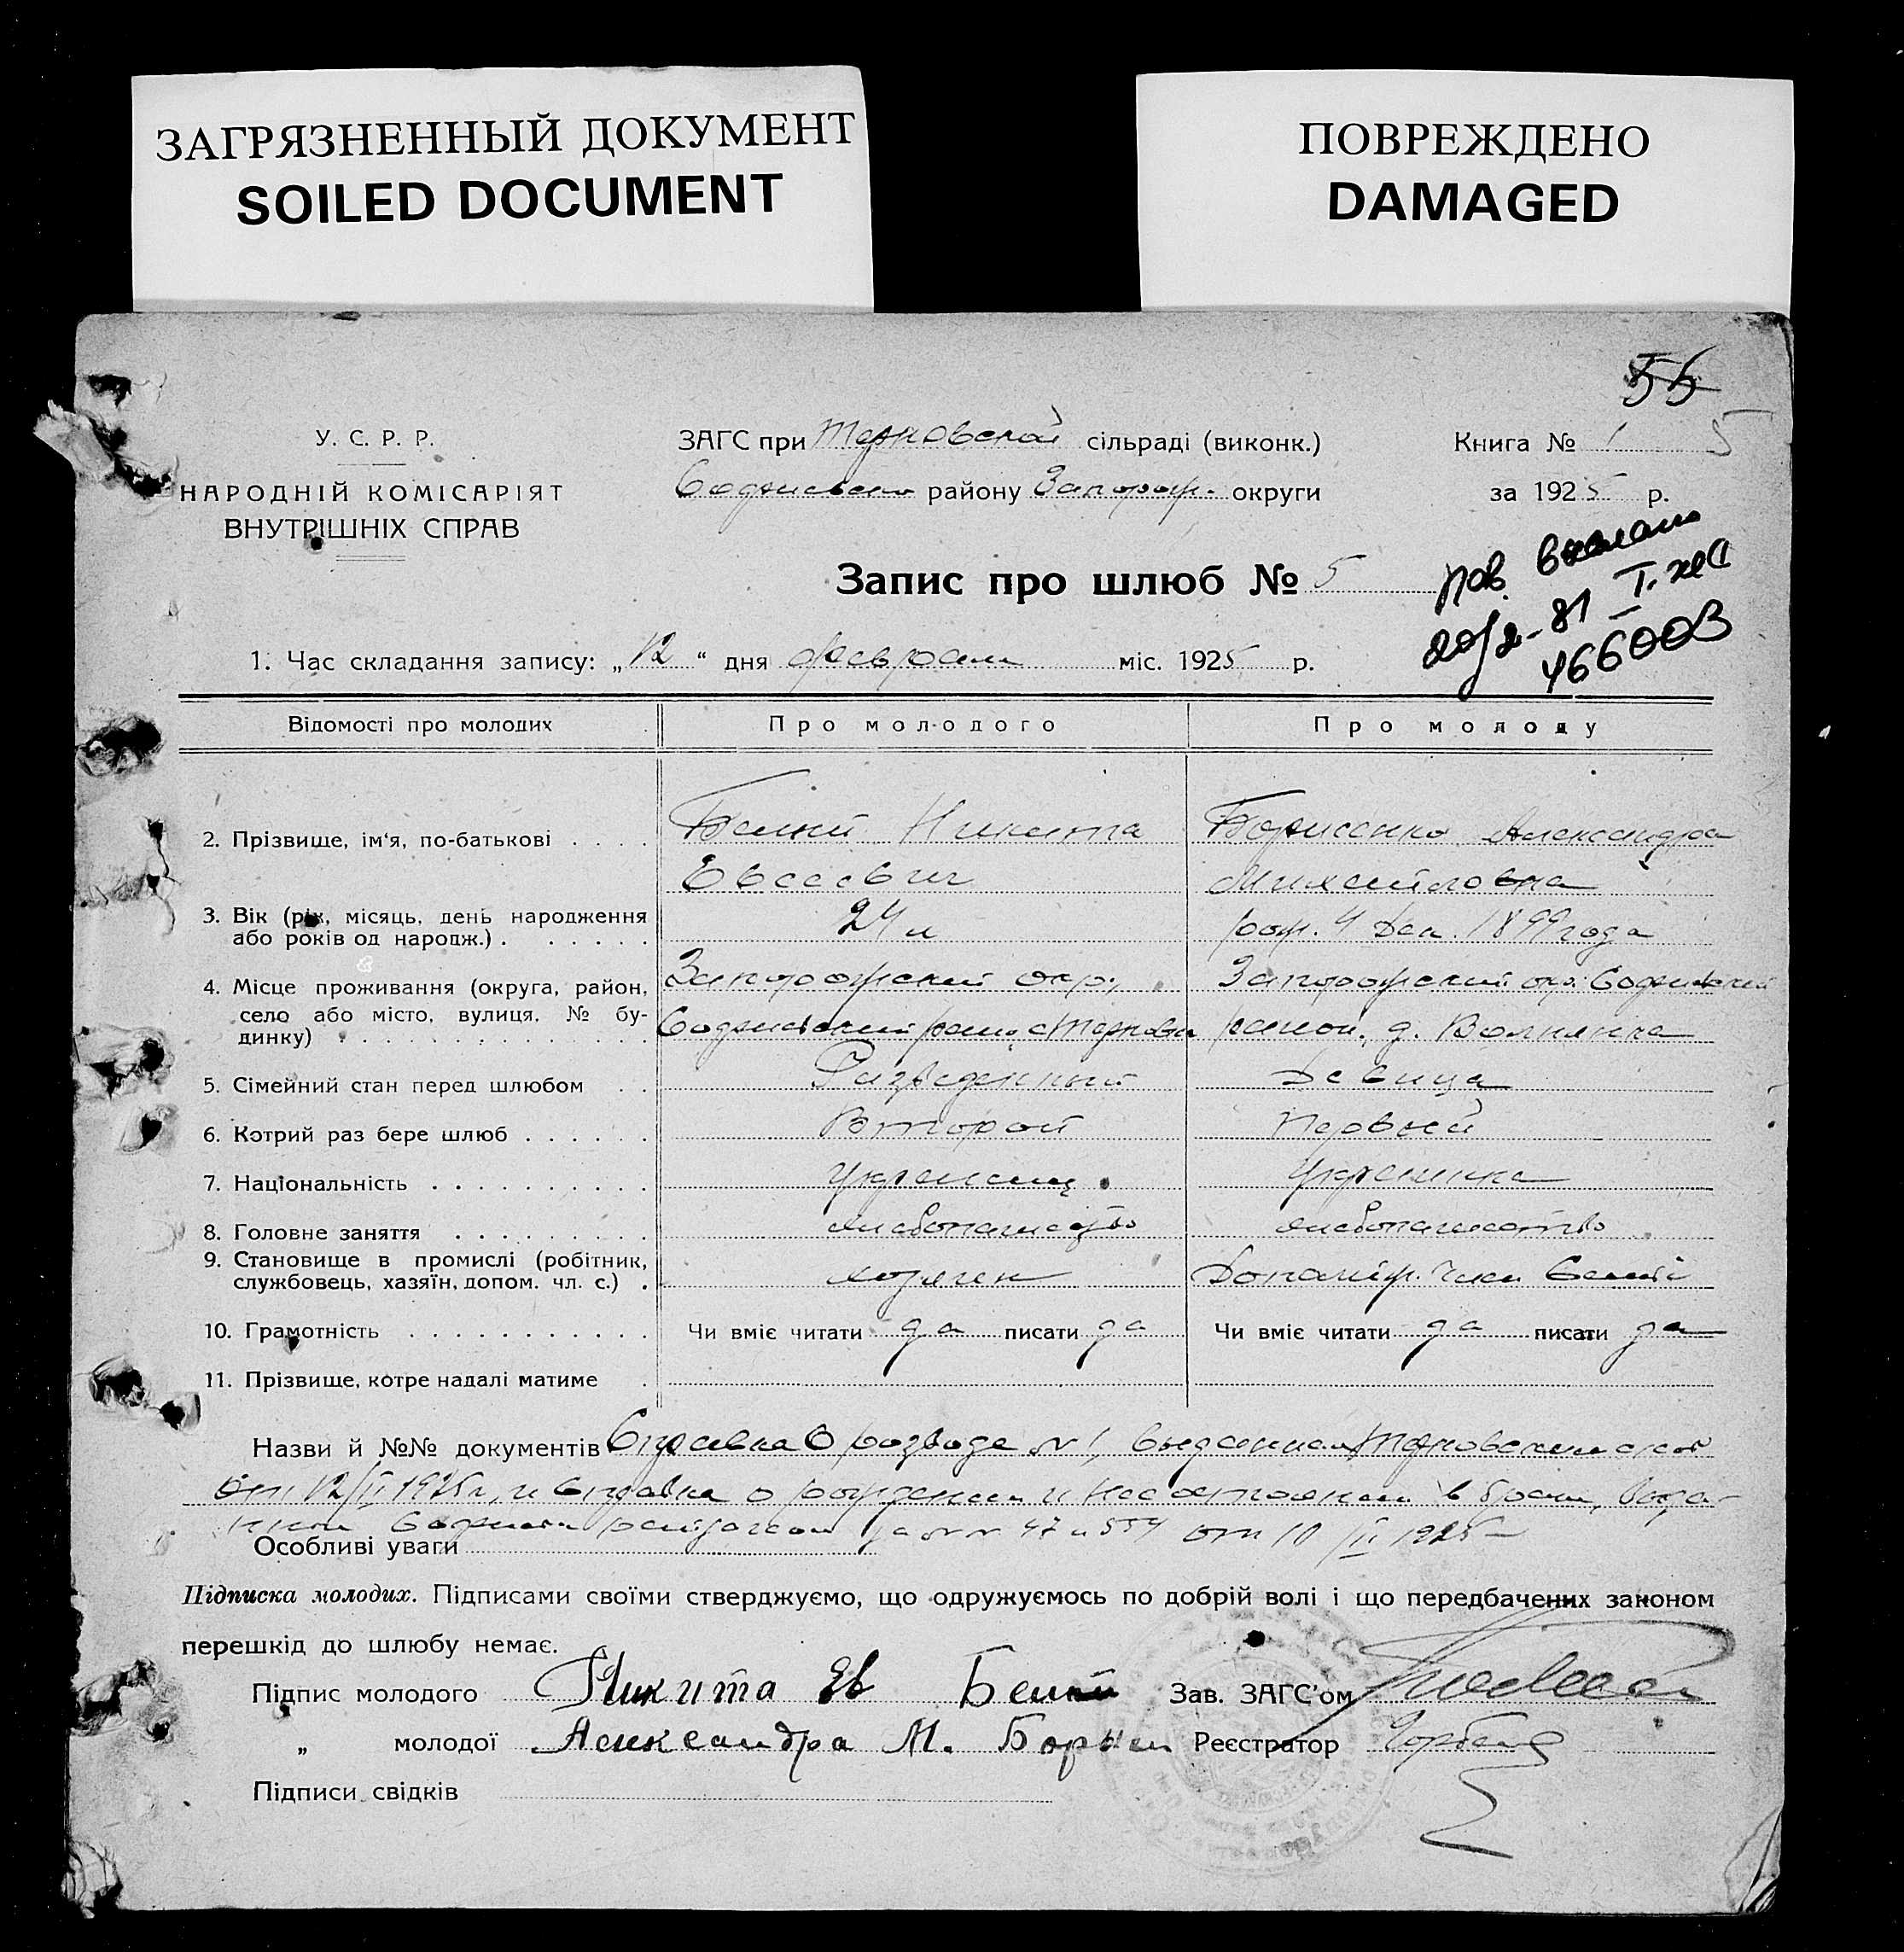 ЗАГРЯЗНЕННЫЙ ДОКУМЕНТ
SOILED DOCUMENT
ПОВРЕЖДЕНО
DAMAGED
55
5
У. С. Р. Р.
НАРОДНІЙ КОМІСАРІЯТ
ВНУТРІШНІХ СПРАВ
ЗАГС при Терновской сільраді (виконк.)
району Запорож. округи
Книга № 1
за 1925 р.
Запис про шлюб № 5
466003
1. Час складання запису: „12“ дня февраля міс. 1925 р.
Відомості про молодих Про молодого Про молоду
2. Прізвище, ім'я, по-батькові . . . . Белый Никита Борисенко Александра
Евсеевич Михайловна
3. Вік (рік, місяць, день народження
або років од народж.) . . . . . . 24 л рож. 4 Дек. 1899 года
4. Місце проживання (округа, район, Запорожский окр. Запорожский окр.
село або місто, вулиця, № бу-
динку) район. д.
5. Сімейний стан перед шлюбом . . Разведенный Девица
6. Котрий раз бере шлюб . . . . . . Второй Первый
7. Національність . . . . . . . . . . украинец украинка
8. Головне заняття . . . . . . . . . хлебопашество хлебопашество
9. Становище в промислі (робітник,
службовець, хазяїн, допом. чл. с.) . хозяин член семьи
10. Грамотність . . . . . . . . . . . Чи вміє читати да писати да Чи вміє читати да писати да
11. Прізвище, котре надалі матиме .
Назви й №№ документів Справка о разводе № 1, выданная Терновским
от 12/II 1925 г. и справка о рождении и не состоянии в браке,
за №№ 47 и 554 от 10/II 1925
Особливі уваги
Підписка молодих. Підписами своїми стверджуємо, що одружуємось по добрій волі і що передбачених законом
перешкід до шлюбу немає.
Підпис молодого Никита Ев Белый Зав. ЗАГС'ом
„ молодої Александра М. Реєстратор
Підписи свідків